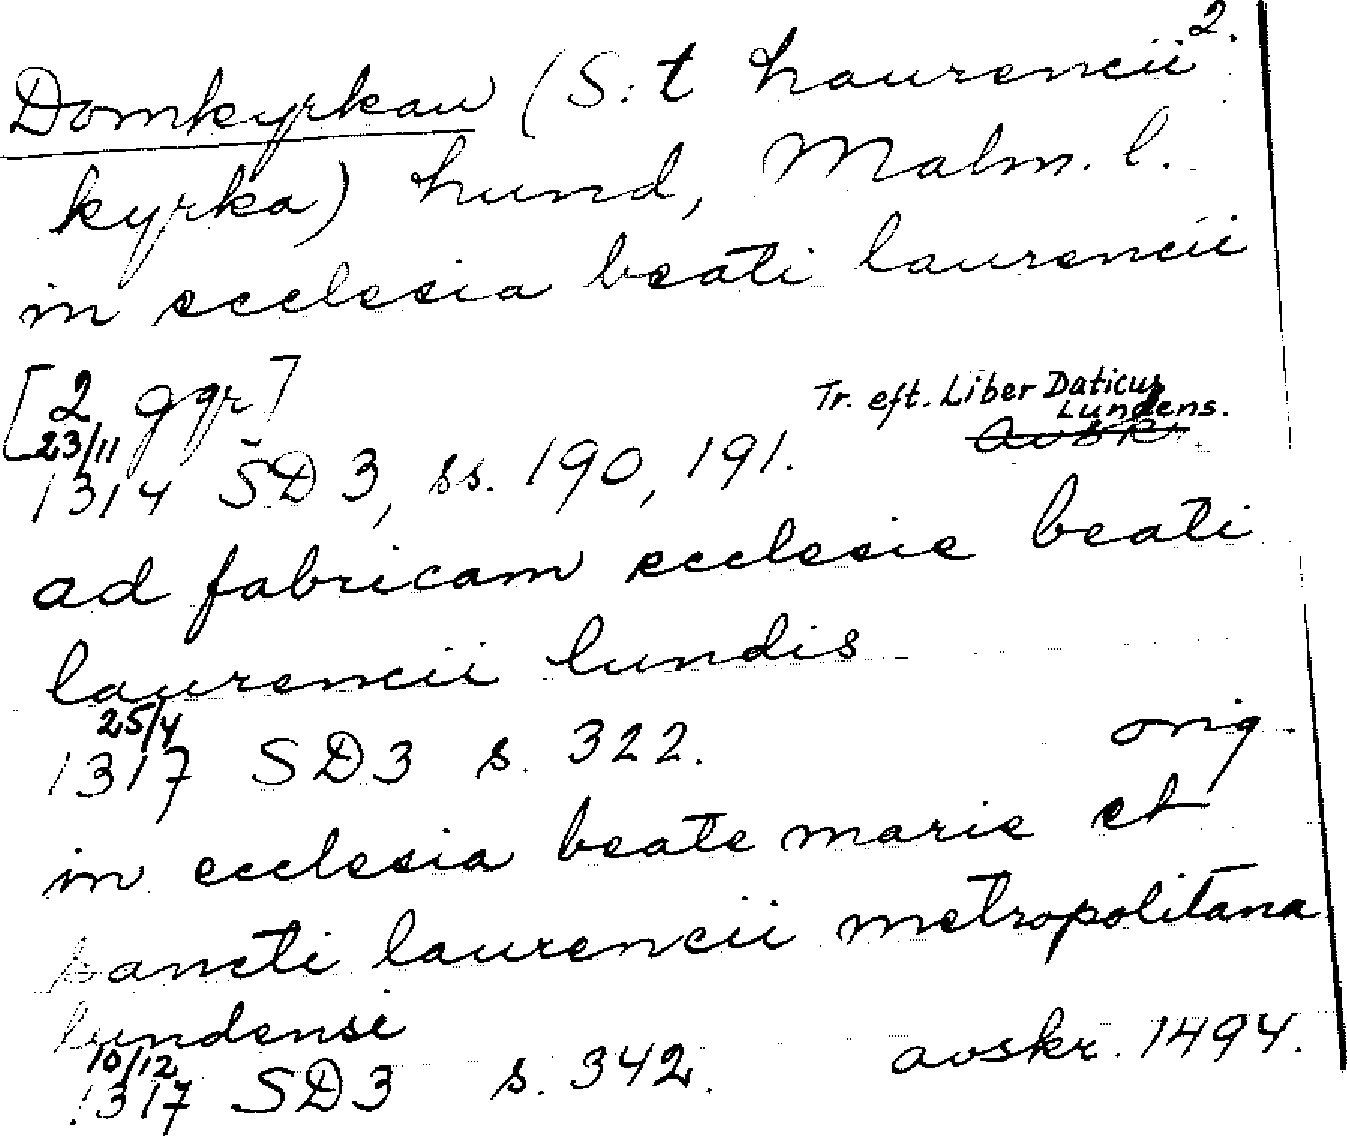 2.
Domkyrkan (S:t Laurencii
kyrka) Lund, Malm. l.
in ecclesia beati laurencii
[2 ggr]
Tr. eft. Liber Daticus
Lundens.
avskr.
23/11
1314 SD 3, ss. 190, 191.
ad fabricam ecclesie beati
laurencii lundis
25/4
1317 SD3 s. 322. orig.
in ecclesia beate marie et
sancti laurencii metropolitana
lundensi
10/12
1317 SD3 s. 342. avskr. 1494.